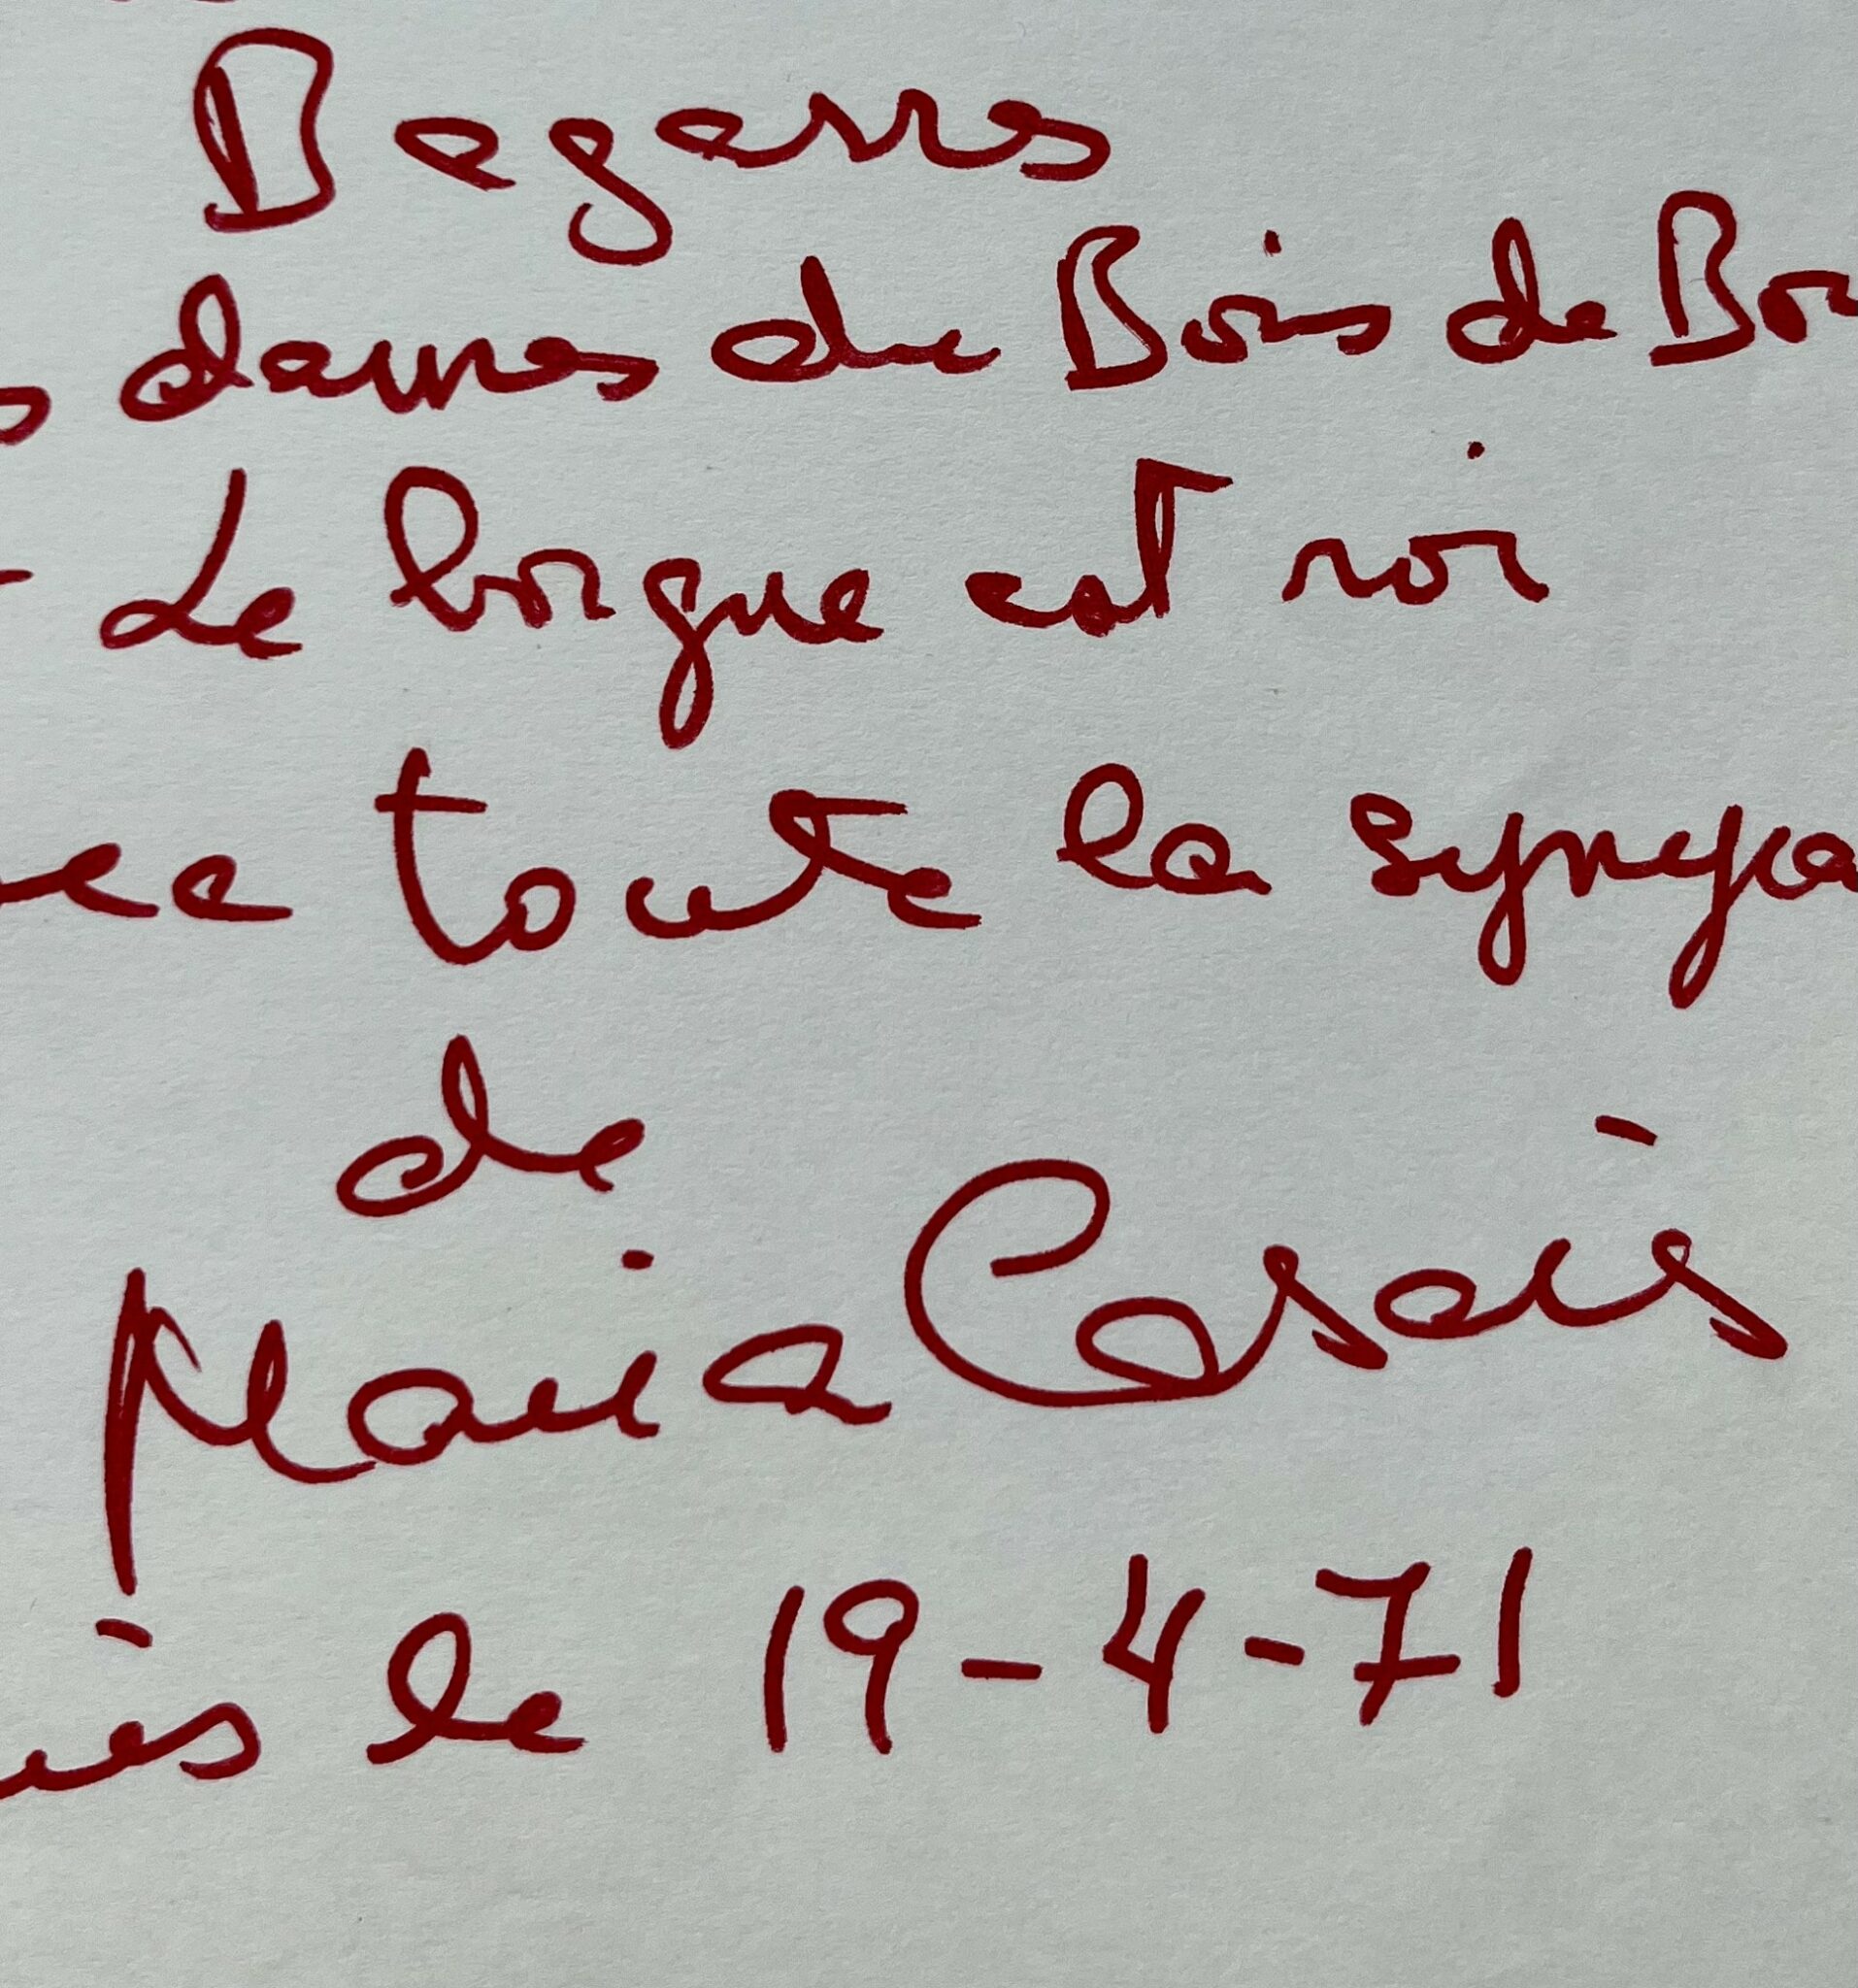 Begarss
dames du Bois de Bou
Le borgne est roi
toute la sympa
de
Maria Casarès
le 19-4-71